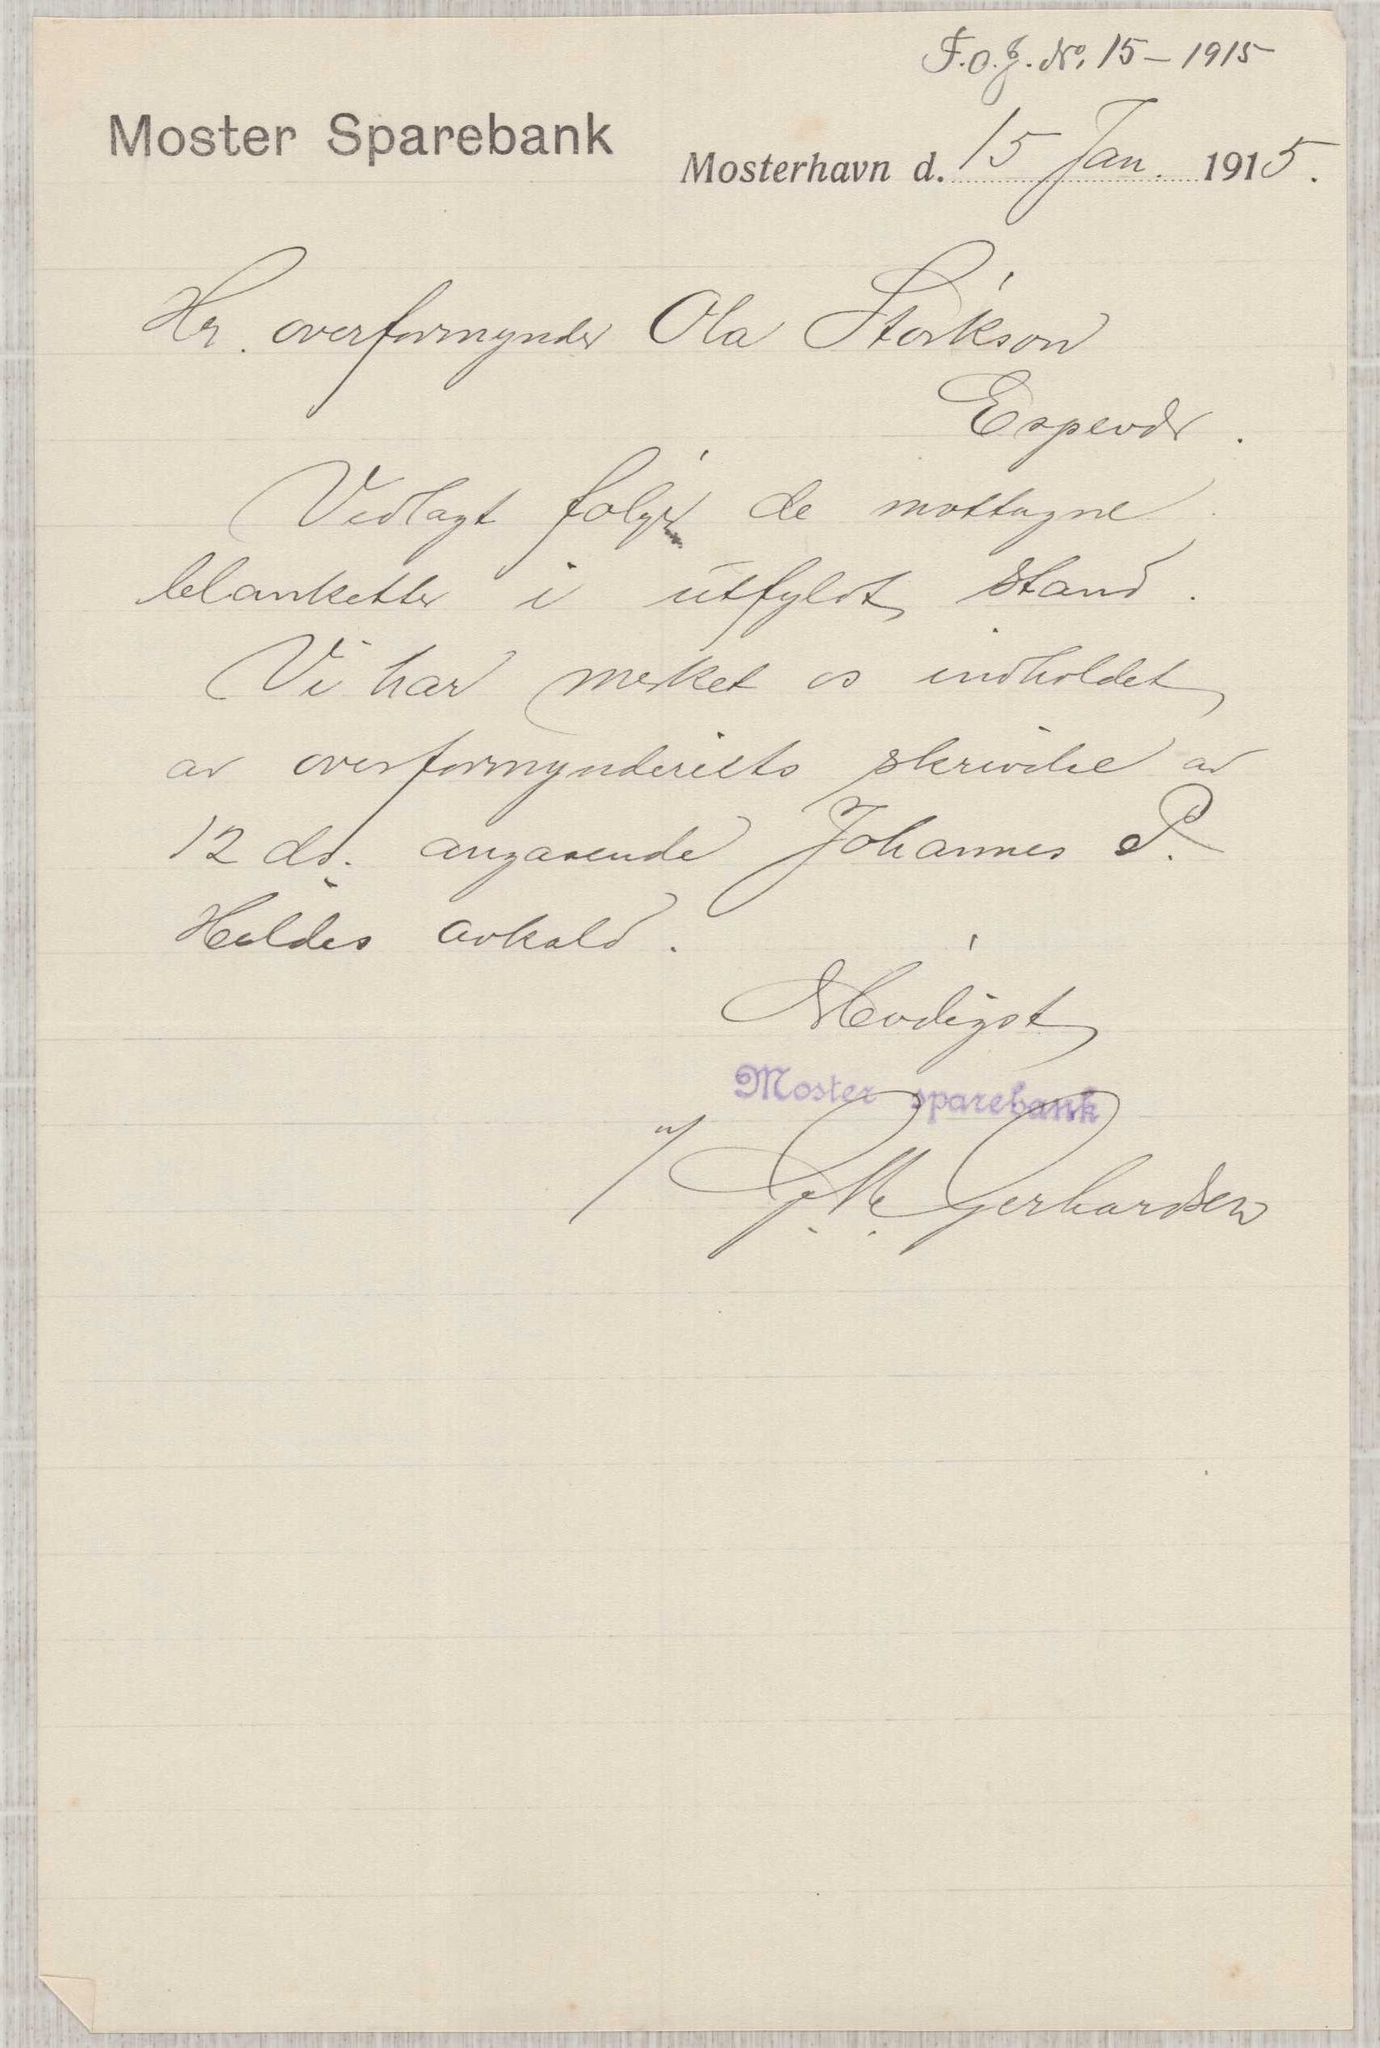 F.o.J. No. 15 – 1915
Moster Sparebank
Mosterhavn d. 15 Jan. 1915.
Hr. overformynder Ola Størkson
Espevær.
Vedlagt følger de mottagne
blanketter i utfyldt stand.
Vi har merket os indholdet
av overformynderiets skrivelse av
12 ds. angaaende Johannes P.
Heldes avkald.
Ærbødigst
Moster sparebank
Gerhardsen